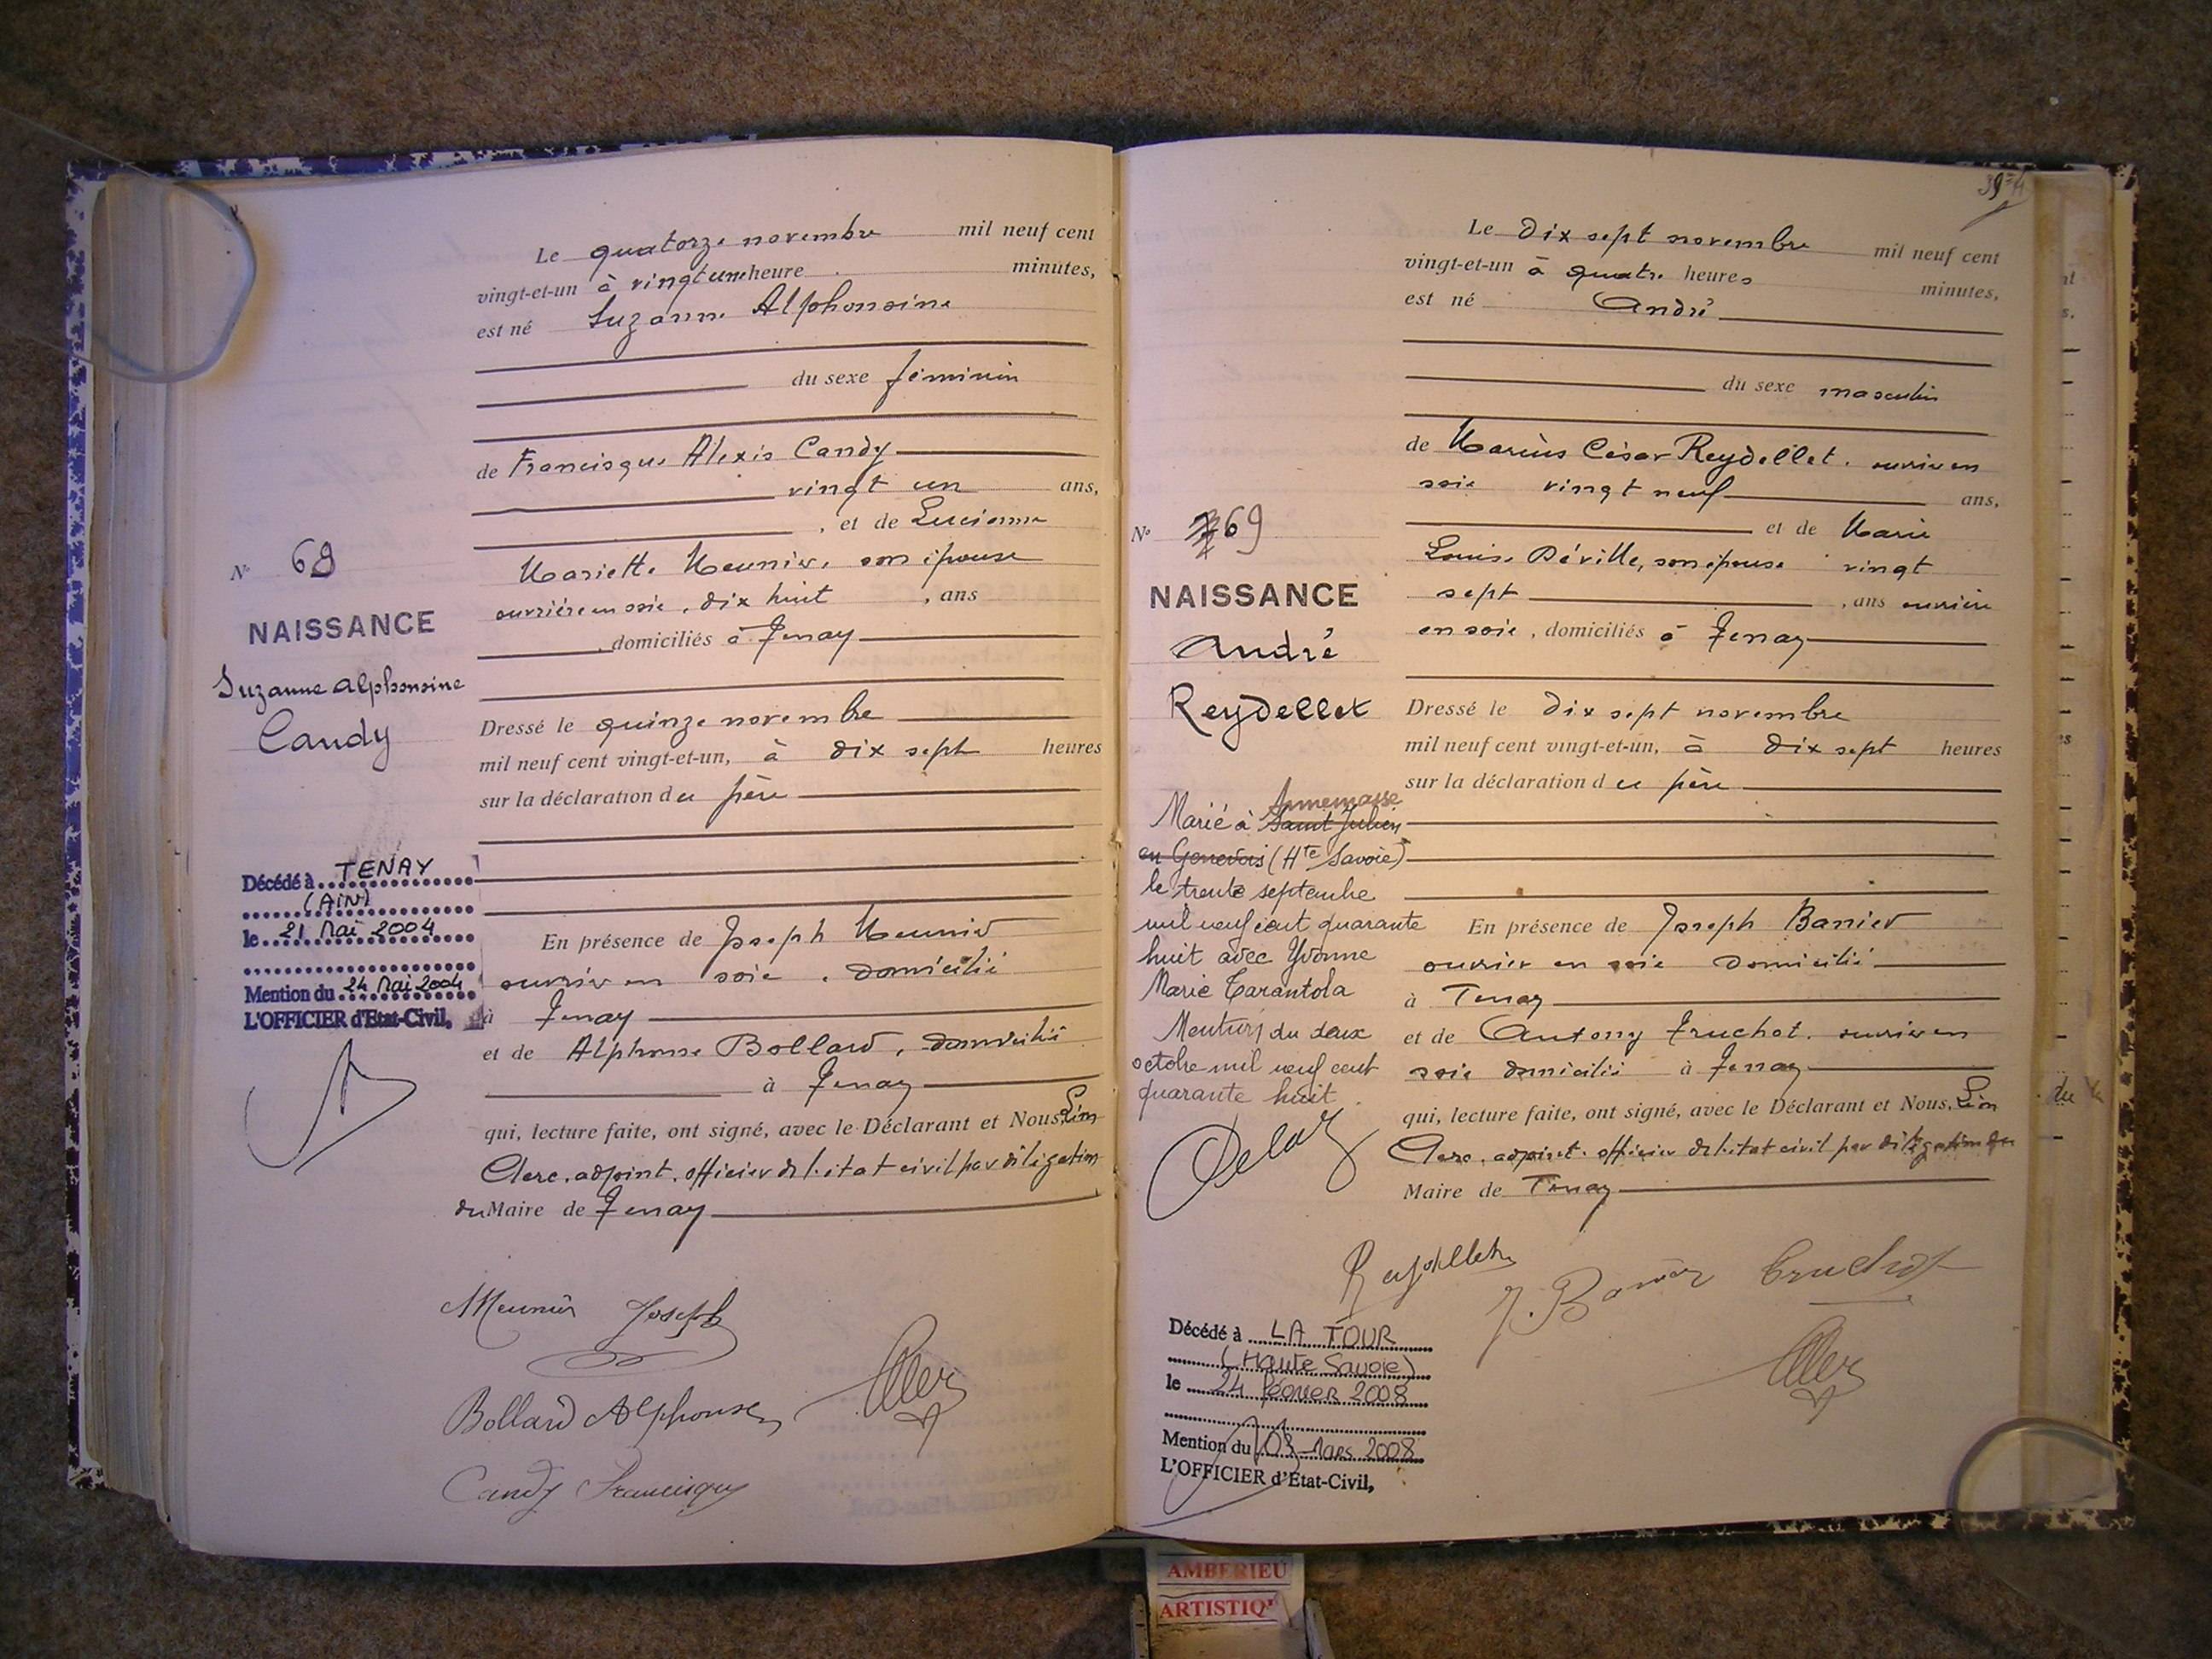 Le quatorze novembre mil neuf cent
vingt-et-un à vingt une heure minutes,
est né Suzanne Alphonsine
du sexe féminin
de Francisque Alexis Candy
vingt un ans,
, et de Lucienne
Mariette Meunier, son épouse
ouvrière en soie, dix huit , ans
, domiciliés à Tenay
N° 68
NAISSANCE
Suzanne Alphonsine
Candy
Dressé le quinze novembre
mil neuf cent vingt-et-un, à dix sept heures
sur la déclaration du père
Décédé à TENAY
(AIN)
le 21 Mai 2004
Mention du 24 Mai 2004
L'OFFICIER d'Etat-Civil,
En présence de Joseph Meunier
ouvrier en soie, domicilié
à Tenay
et de Alphonse Bollard, domicilié
à Tenay
qui, lecture faite, ont signé, avec le Déclarant et Nous, Léon
Clerc, adjoint, officier de l'état civil par délégation
du Maire de Tenay
Meunier Joseph
Bollard Alphonse
Candy Francisque
Le dix sept novembre mil neuf cent
vingt-et-un à quatre heures minutes,
est né André
du sexe masculin
de Marius César Reydellet, ouvrier en
soie vingt neuf ans,
et de Marie
Louise Déville, son épouse vingt
sept , ans ouvrière
en soie, domiciliés à Tenay
N° 69
NAISSANCE
André
Reydellet
Dressé le dix sept novembre
mil neuf cent vingt-et-un, à dix sept heures
sur la déclaration du père
Annemasse
Marié à Saint Julien
en Genevois (Hte Savoie)
le trente septembre
mil neuf cent quarante
huit avec Yvonne
Marie Tarantola
Mention du deux
octobre mil neuf cent
quarante huit
En présence de Joseph Banier
ouvrier en soie domicilié
à Tenay
et de Antony Truchot, ouvrier en
soie domicilié à Tenay
qui, lecture faite, ont signé, avec le Déclarant et Nous, Léon
Clerc, adjoint, officier de l'état civil par délégation du
Maire de Tenay
Reydellet
J. Banier Truchot
Décédé à LA TOUR
(Haute Savoie)
le 24 février 2008
Mention du 03 Mars 2008
L'OFFICIER d'Etat-Civil,
AMBERIEU
ARTISTIQ